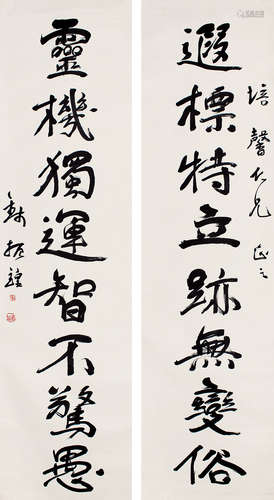 培馨仁兄正之
遐標特立跡無變俗
靈機獨運智不驚愚
錢振鍠